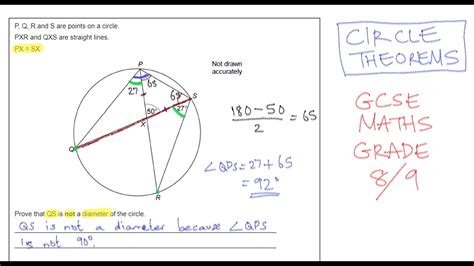 P, Q, R and S are points on a circle.
PXR and QXS are straight lines.
PX = SX
Not drawn
accurately
P
27
65
65
S
50°
27°
X
Q
R
180-50
2
= 65
∠QPS = 27 + 65
= 92°
Prove that QS is not a diameter of the circle.
QS is not a diameter because ∠QPS
is not 90°.
CIRCLE
THEOREMS
GCSE
MATHS
GRADE
8/9